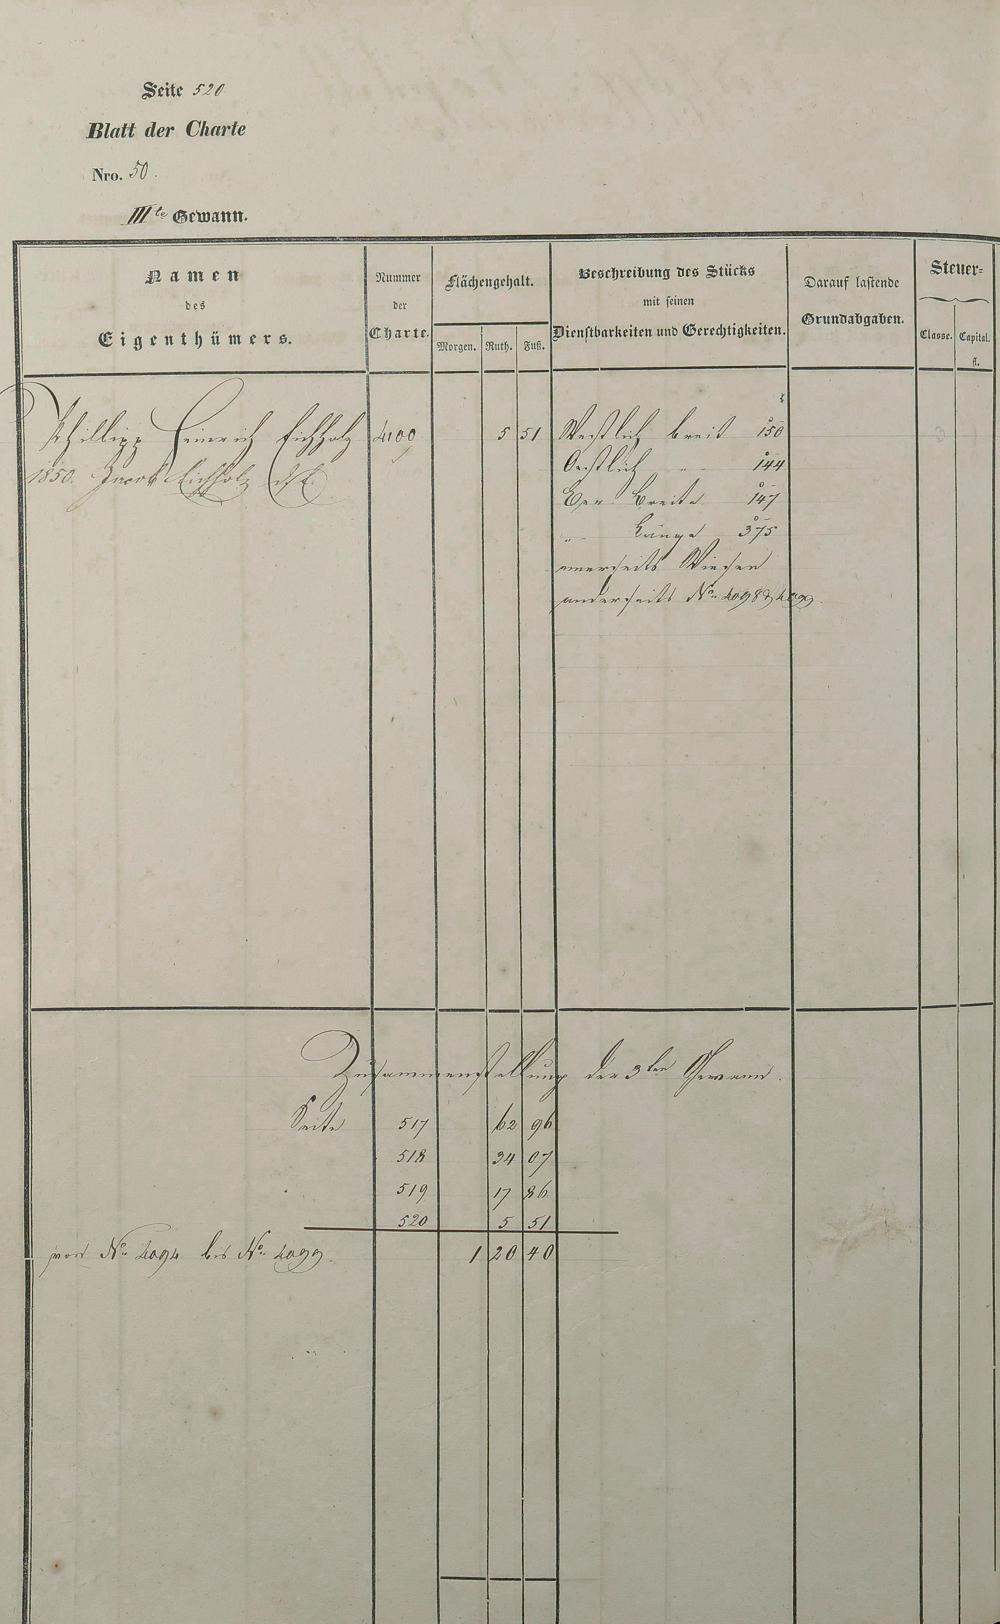 Seite 520
Blatt der Charte
Nro. 50.
IIIte Gewann.
Namen
des
Eigenthümers.
Nummer
der
Charte.
Flächengehalt.
Morgen. Ruth. Fuß.
Beschreibung des Stücks
mit seinen
Dienstbarkeiten und Gerechtigkeiten.
Darauf lastende
Grundabgaben.
Steuer-
Classe. Capital.
fl.
Phillipp Heinrich Eichholz 4100 5 51 Westlich breit 150
1850. Jacob Eichholz Oestlich " 144
Breite 147
" Länge 375
einerseits Wiesen
anderseits No. 4098 & 4099.
Zusammenstellung der 3ten Gewann.
Seite 517 62 96
518 34 07
519 17 86
520 5 51
von No. 4094 bis No. 4099. 1 20 40